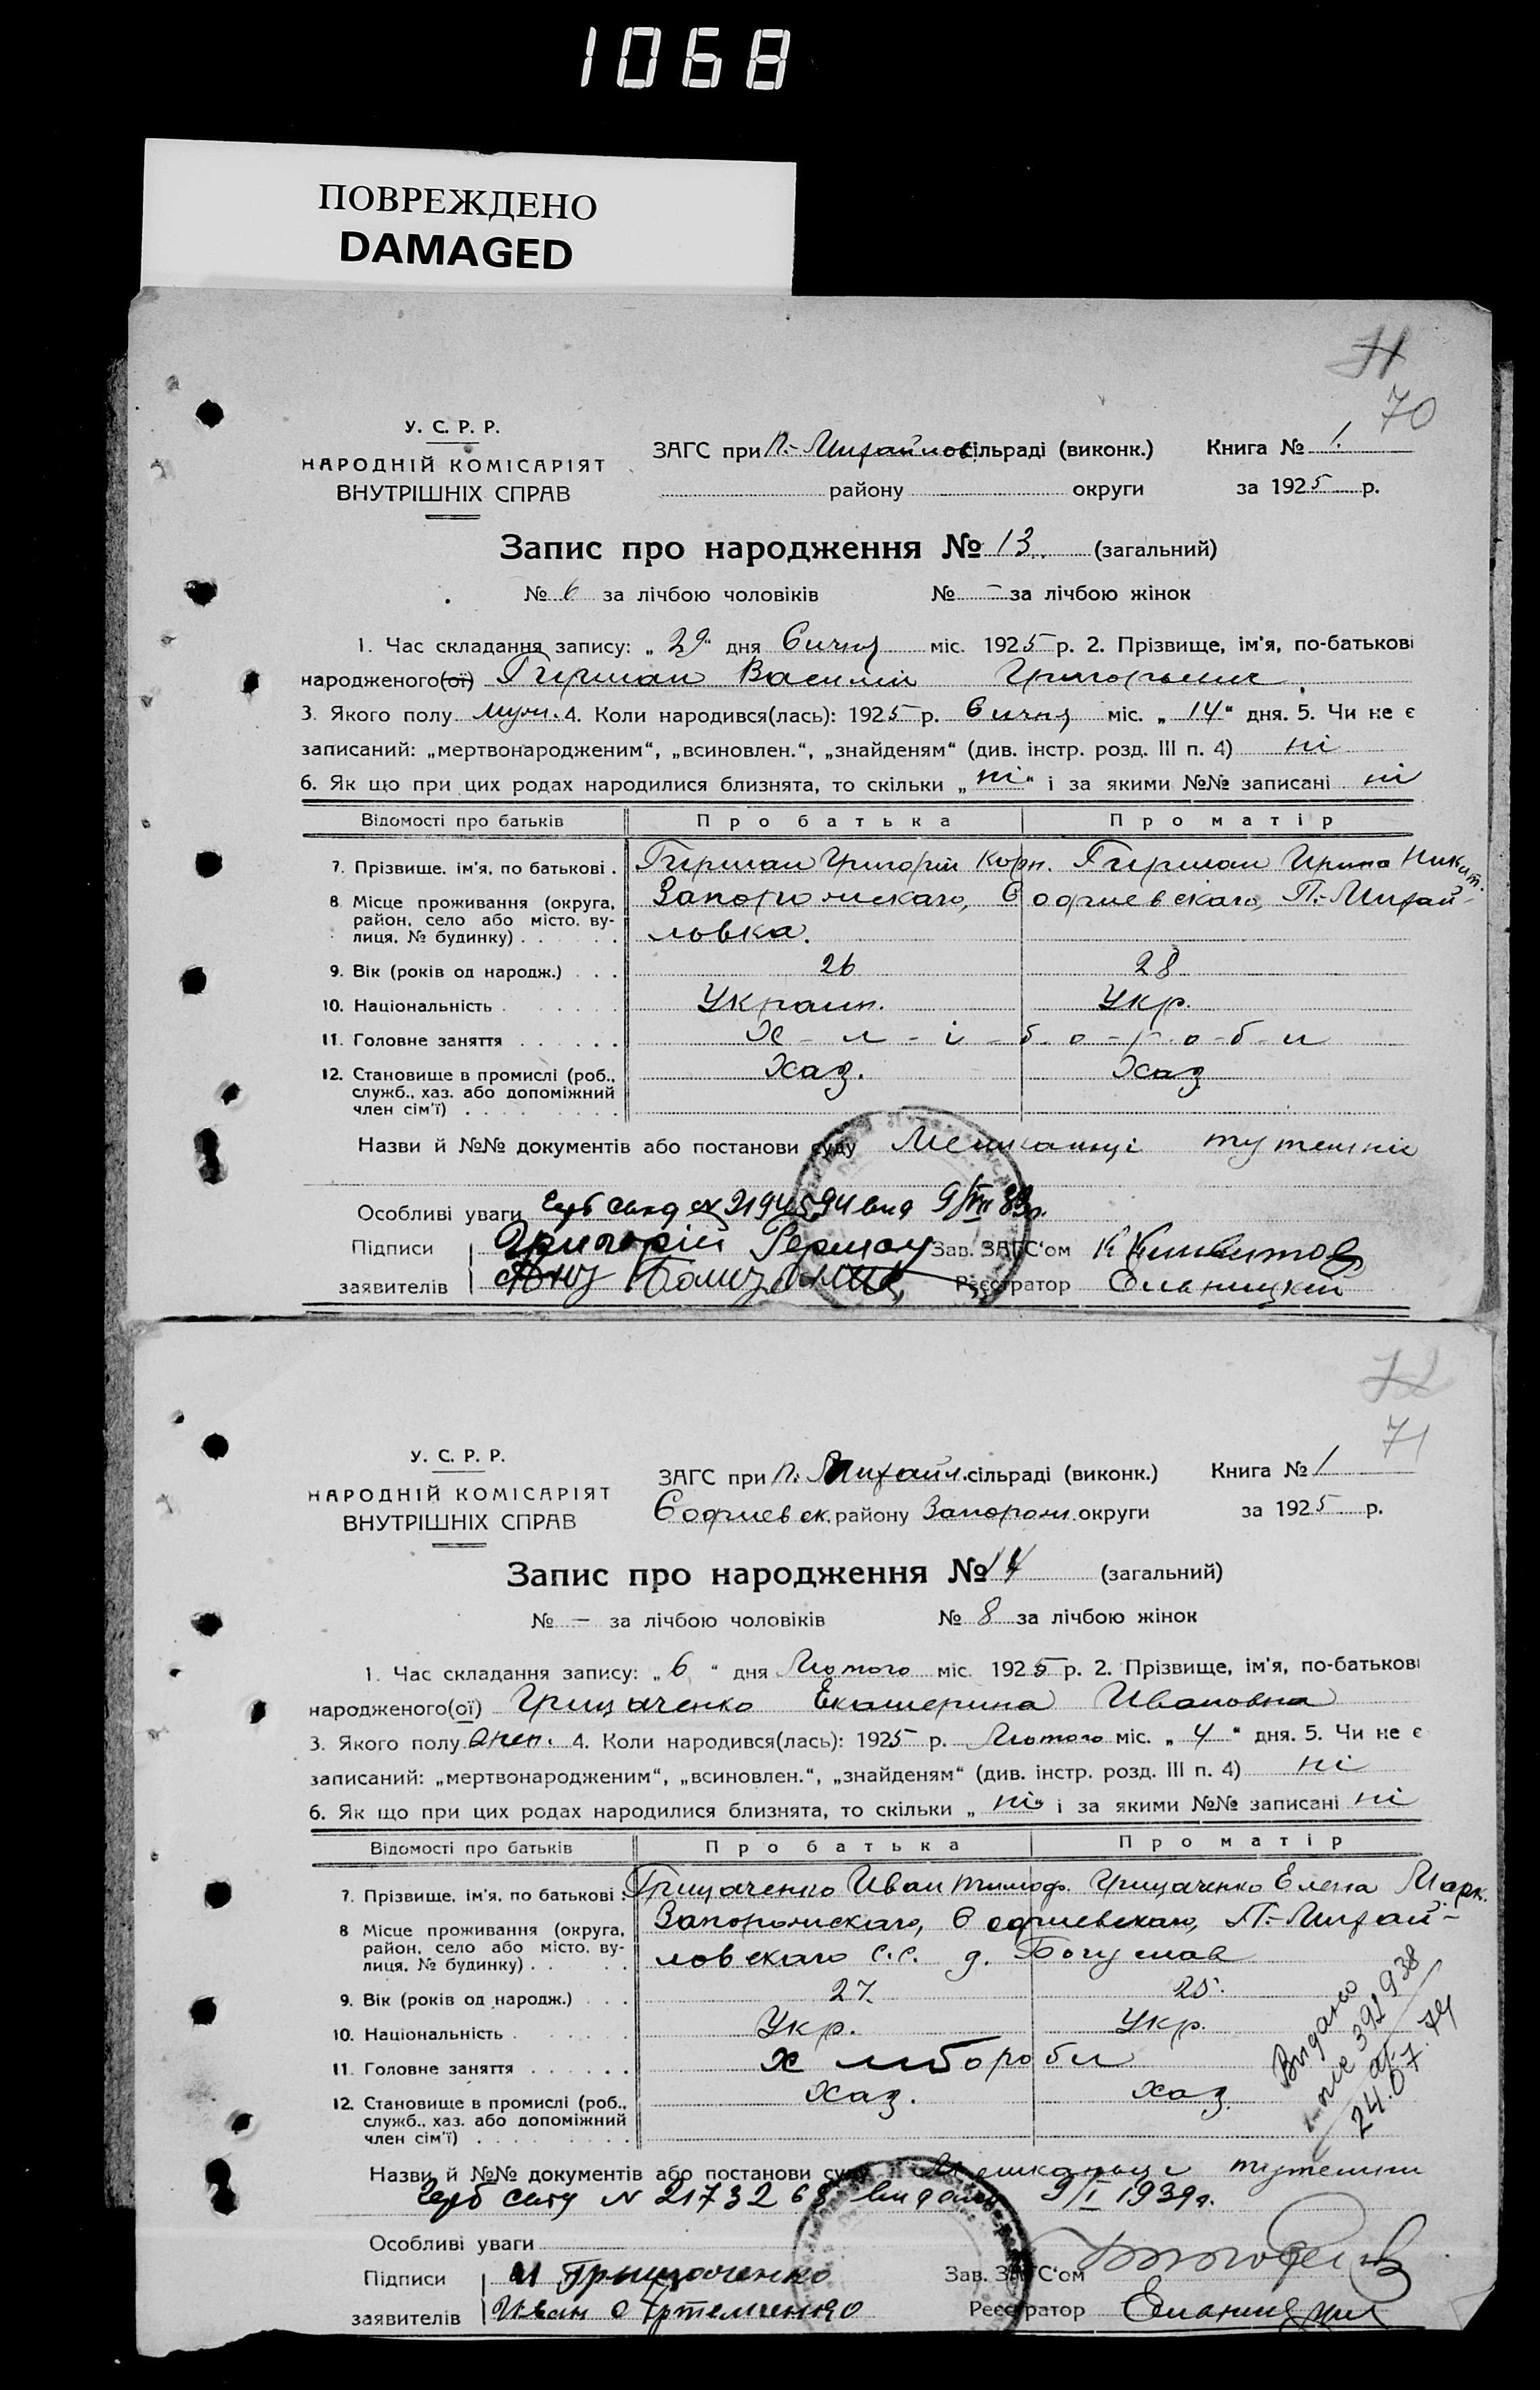 1068
ПОВРЕЖДЕНО
DAMAGED
71
70
У. С. Р. Р.
НАРОДНІЙ КОМІСАРІЯТ
ВНУТРІШНІХ СПРАВ
ЗАГС при П.-Михайлов. сільраді (виконк.)
району округи
Книга № 1.
за 1925 р.
Запис про народження № 13. (загальний)
№ 6 за лічбою чоловіків № - за лічбою жінок
1. Час складання запису: „ 29 “ дня Січня міс. 1925 р. 2. Прізвище, ім'я, по-батькові
народженого(ої) Герман Василий Григорьевич
3. Якого полу муж. 4. Коли народився(лась): 1925 р. Січня міс. „ 14 “ дня. 5. Чи не є
записаний: „мертвонародженим“, „всиновлен.“, „знайденям“ (див. інстр. розд. III п. 4) ні
6. Як що при цих родах народилися близнята, то скільки „ ні “ і за якими №№ записані ні
Відомості про батьків Про батька Про матір
7. Прізвище, ім'я, по батькові . Герман Григорій Корн. Герман Ирина Никит.
8 Місце проживання (округа, район, село або місто, вулиця, № будинку) . Запорожскаго, Софиевскаго, П.-Михай-
ловка.
9. Вік (років од народж.) . . . 26 28
10. Національність . Украин. Укр.
11. Головне заняття . Х - л - і - б - о - р - о - б - и
12. Становище в промислі (роб., служб., хаз. або допоміжний член сім'ї) . Хаз. Хаз
Назви й №№ документів або постанови суду Мешканці тутешні
Особливі уваги
Підписи Григорій Герман Зав. ЗАГС'ом
заявителів Реєстратор
72
71
У. С. Р. Р.
НАРОДНІЙ КОМІСАРІЯТ
ВНУТРІШНІХ СПРАВ
ЗАГС при П. Михайл. сільраді (виконк.)
Софиевск. району Запорож. округи
Книга № 1
за 1925 р.
Запис про народження № 14 (загальний)
№ - за лічбою чоловіків № 8 за лічбою жінок
1. Час складання запису: „ 6 “ дня Лютого міс. 1925 р. 2. Прізвище, ім'я, по-батькові
народженого(ої) Грищаченко Екатерина Ивановна
3. Якого полу жен. 4. Коли народився(лась): 1925 р. Лютого міс. „ 4 “ дня. 5. Чи не є
записаний: „мертвонародженим“, „всиновлен.“, „знайденям“ (див. інстр. розд. III п. 4) ні
6. Як що при цих родах народилися близнята, то скільки „ ні “ і за якими №№ записані ні
Відомості про батьків Про батька Про матір
7. Прізвище, ім'я, по батькові . Грищаченко Иван Тимоф. Грищаченко Елена Марк.
8 Місце проживання (округа, район, село або місто, вулиця, № будинку) . Запорожскаго, Софиевскаго, П.-Михай-
ловскаго С.С. д. Богуслав
9. Вік (років од народж.) . . . 27. 25.
10. Національність . Укр. Укр.
11. Головне заняття . хлібороби
12. Становище в промислі (роб., служб., хаз. або допоміжний член сім'ї) . хаз. хаз.
Видано
392938
24.07.74
Назви й №№ документів або постанови суду Мешканьці тутешни
N 2173268 видано 9/I 1939 г.
Особливі уваги
Підписи И Грищаченко Зав. ЗАГС'ом
заявителів Иван Артемченко Реєстратор